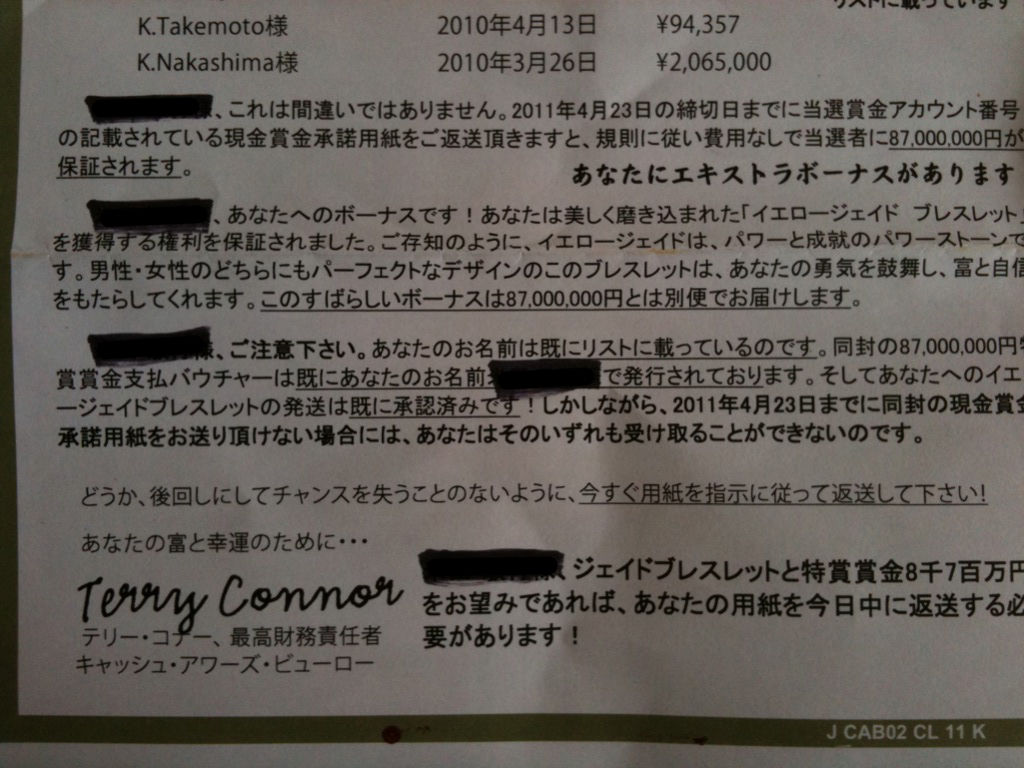 リストに載っています
K.Takemoto様 2010年4月13日 ¥94,357
K.Nakashima様 2010年3月26日 ¥2,065,000
様、これは間違いではありません。2011年4月23日の締切日までに当選賞金アカウント番号
の記載されている現金賞金承諾用紙をご返送頂きますと、規則に従い費用なしで当選者に87,000,000円が
保証されます。
あなたにエキストラボーナスがあります
、あなたへのボーナスです！あなたは美しく磨き込まれた「イエロージェイド ブレスレット」
を獲得する権利を保証されました。ご存知のように、イエロージェイドは、パワーと成就のパワーストーンで
す。男性・女性のどちらにもパーフェクトなデザインのこのブレスレットは、あなたの勇気を鼓舞し、富と自信
をもたらしてくれます。このすばらしいボーナスは87,000,000円とは別便でお届けします。
様、ご注意下さい。あなたのお名前は既にリストに載っているのです。同封の87,000,000円特
賞賞金支払バウチャーは既にあなたのお名前 で発行されております。そしてあなたへのイエ
ージェイドブレスレットの発送は既に承認済みです！しかしながら、2011年4月23日までに同封の現金賞金
承諾用紙をお送り頂けない場合には、あなたはそのいずれも受け取ることができないのです。
どうか、後回しにしてチャンスを失うことのないように、今すぐ用紙を指示に従って返送して下さい!
あなたの富と幸運のために・・・
Terry Connor
テリー・コナー、最高財務責任者
キャッシュ・アワーズ・ビューロー
様、ジェイドブレスレットと特賞賞金8千7百万円
をお望みであれば、あなたの用紙を今日中に返送する必
要があります！
J CAB02 CL 11 K